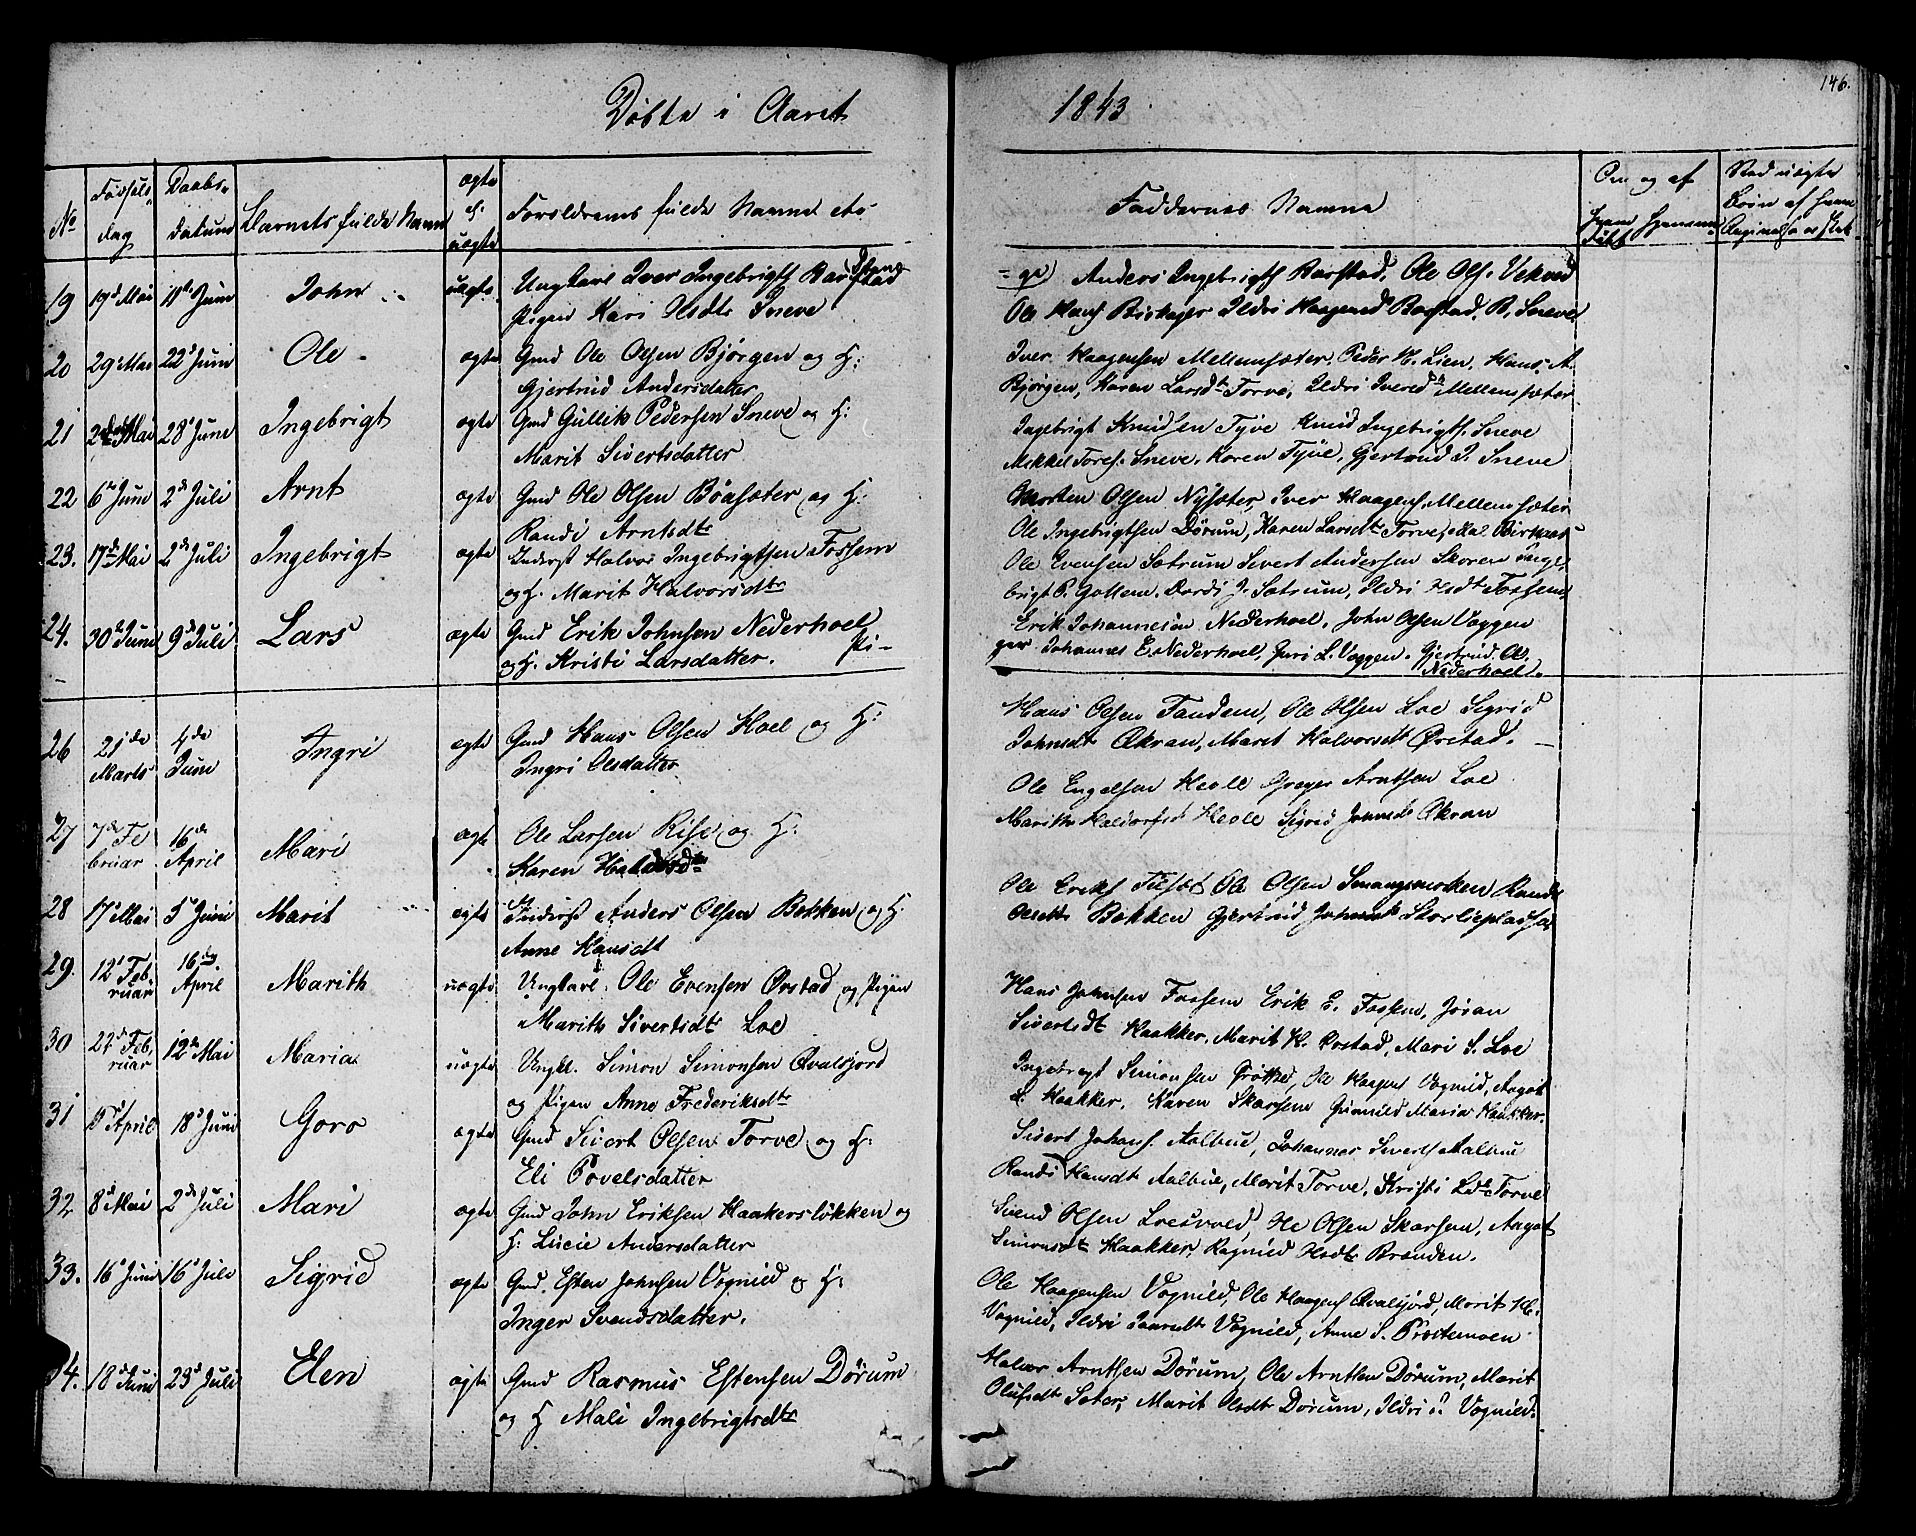 146.
Døbte i Aaret 1843
No
Fødsels dag
Daabs datum
Barnets fulde Navn
ægte el. uægte
Forældrenes fulde Navne etc
Faddernes Navne
Om og af
19 19d Mai 11te Juni John uægte Ungkarl Iver Ingebrigts Barstad
Pigen Kari Olsdtr Sneve
Anders Ingebrigts Barstad, Ole Ols. Vekved
Ole Hans Birkager Ildri Haagensd Barstad, B. Sneve
20 29d Mai 22d Juni Ole ægte Gmd Ole Olsen Bjørgen og H:
Gjertrud Andersdatter
Iver Haagensen Mellemsæter, Peder H. Lien, Hans A.
Bjørgen, Karen Larsdtr Torve, Ildri Iversd Mellemsæter
21 Mai 28d June Ingebrigt ægte Gmd Gullik Pedersen Sneve og H:
Marit Sivertsdatter
Ingebrigt Knudsen Tyve Knud Ingebrigts. Sneve
Mikkel Tores. Sneve, Karen Tyve, Gjertrud I. Sneve
22 6te Juni 2d Juli Arnt ægte Gmd Ole Olsen Bøasæter og H:
Randi Arntsdtr
Morten Olsen Nysæter, Iver Haagens. Mellemsæter
Ole Ingebrigtsen Dørum, Karen Larsdtr Torve,
23. 17de Mai 2d Juli Ingebrigt ægte Inderst Halvor Ingebrigtsen Fossem
og H. Marit Halvorsdtr
Ole Evensen Sætrum Sivert Andersen Skoren Inge-
brigt P. Gollem, Dordi J. Sætrum, Ildri Hsdtr Fossem
24. 30d Juni 9d Juli Lars ægte Gmd Erik Johnsen Nederhoel
og H. Kristi Larsdatter. Pi-
Erik Johannesen Nederhoel, John Olsen Vaggen
ger Johannes E. Nederhoel, Guri L. Vaggen. Gjertrud Ol.
Nederhoel.
26 21de Marts 4de Juni Ingri ægte Gmd Hans Olsen Hoel og H:
Ingri Olsdatter
Hans Olsen Tandem, Ole Olsen Loe Sigrid
Johnsdt Økran, Marit Halvorsdt Ørstad.
27 7de Februar 16de April Mari ægte Ole Larsen Rise og H:
Karen
Ole Engelsen Hevle Greger Arntsen Loe
Marith Haldorsd Hevle Sigrid Johnsdt Økran
28 17d Mai 5d Juni Marit ægte Inderst Anders Olsen Bekken og H.
Anne Hansdt
Ole Eriks Ole Olsen Randi
Olsdtr Bekken Gjertrud
29. 12d Februar 16de April Marith uægte Ungkarl Ole Evensen Ørstad og Pigen
Marith Sivertsdt Loe
Hans Johnsen Fossem Erik E. Fossem, Jøran
Sivertsdt Haakker, Marit H. Ørstad, Mari S. Loe
30 22d Februar 12te Mai Maria uægte Ungkl. Simon Simonsen Qvalsjord
og Pigen Anne Frederiksdtr
Ingebrigt Simonsen Ole Haagens Vognild, Aagot
S. Haakker, Karen Skarsem Gunnild Maria Haakker.
31 5te April 18d Juni Goro ægte Gmd Sivert Olsen Torve og H:
Eli Povelsdatter
Sivert Johans. Aalbue, Johannes Siverts Aalbue
Randi Hansdt Aalbue, Marit Torve, Kristi Ldt Torve
32 8d Mai 2d Juli Mari ægte Gmd John Eriksen Haakersløkken og
H: Lucie Andersdatter
Svend Olsen Løesvold, Ole Olsen Skarsem, Aagot
Simonsdt Haakker, Ragnild Hsdtr Branden.
33. 16d Juni 16d Juli Sigrid ægte Gmd. Esten Johnsen Vognild og H:
Inger Svendsdatter.
Ole Haagensen Vognild, Ole Haagens Qvalsjord, Marit H.
Vognild, Ildri Vognild, Anne S. Prestemoen
34. 18d Juni 23d Juli Elen ægte Gmd Rasmus Estensen Dørum
og H Mali Ingebrigtsdtr
Halvor Arntsen Dørum, Ole Arntsen Dørum, Marit
Olufsdt Sæter, Marit Olsdt Dørum, Ildri I. Vognild.